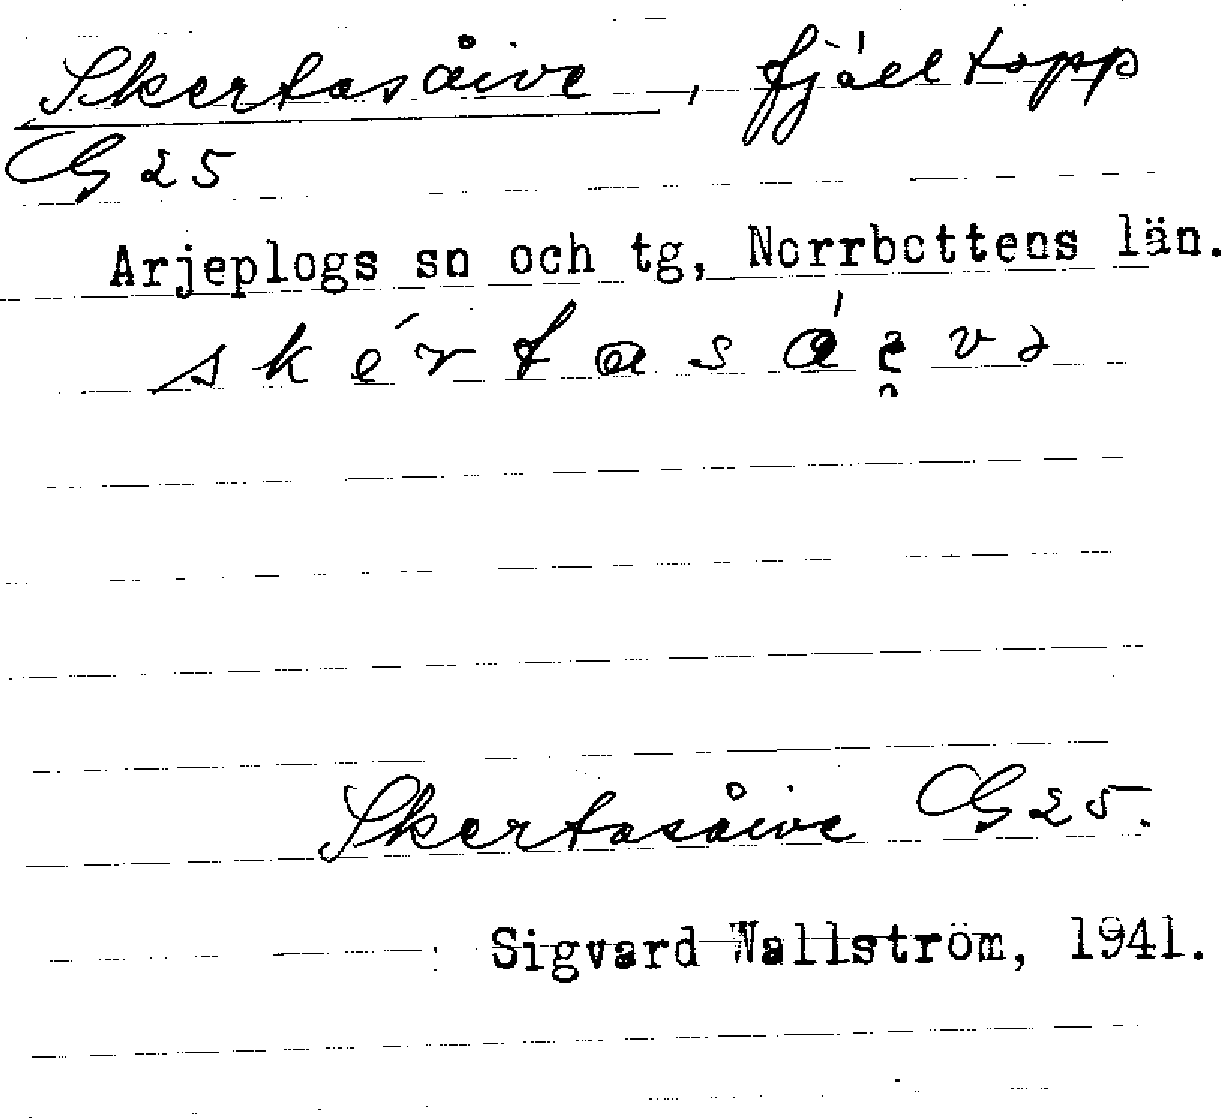 Skertasåive, fjälltopp
G 25
Arjeplogs sn och tg, Norrbottens län.
skértasáe̯və
Skertasåive G 25.
Sigvard Wallström, 1941.